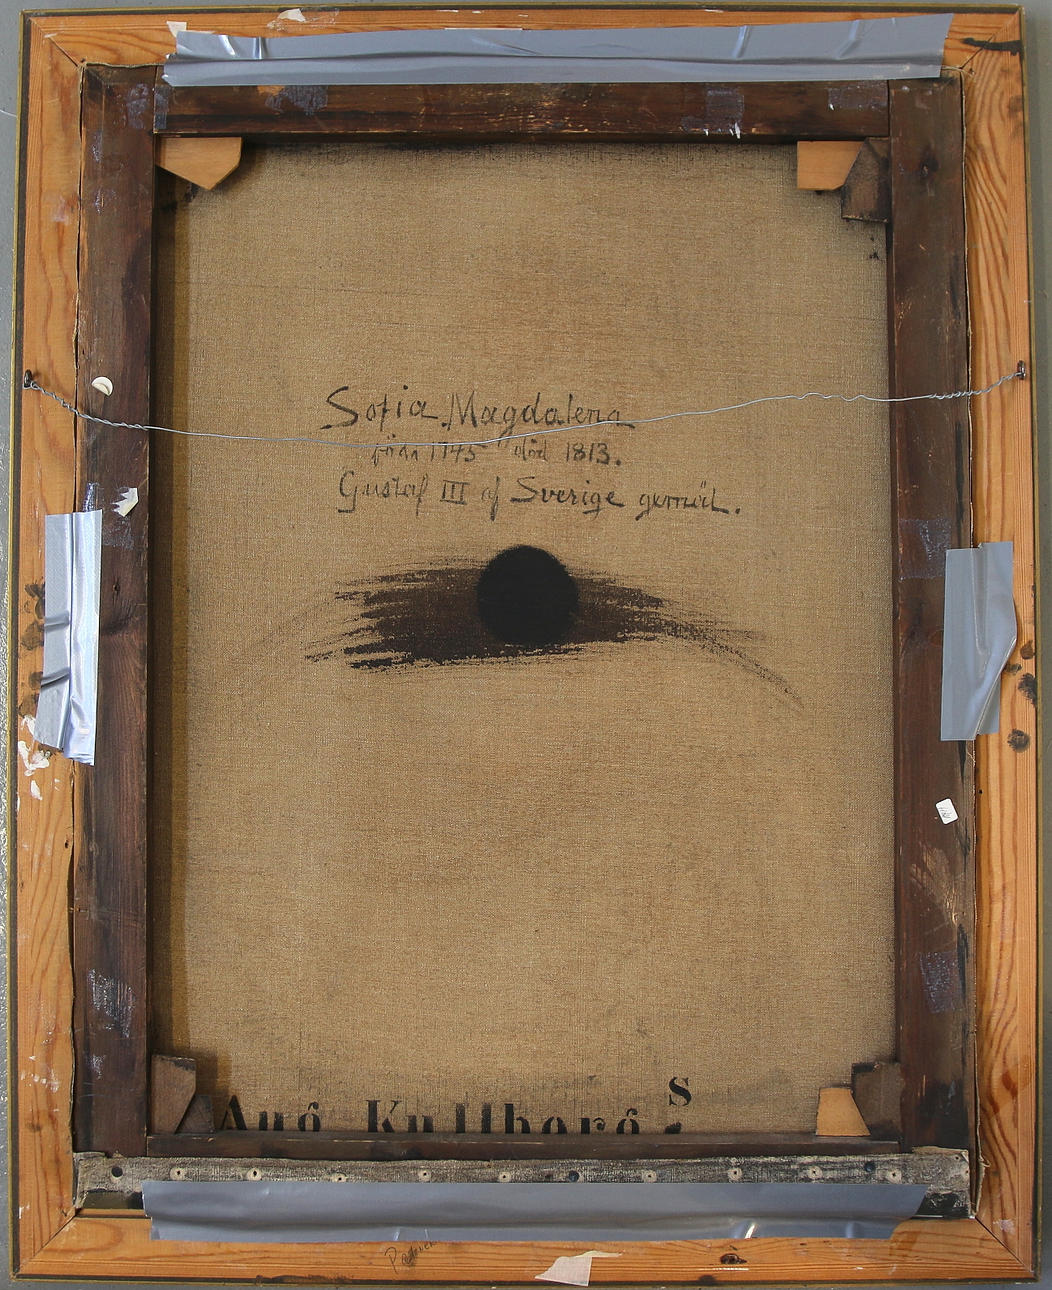 Sofia Magdalena
född 1745 död 1813.
Gustaf III af Sverige gemål.
S
Aug Kullberg